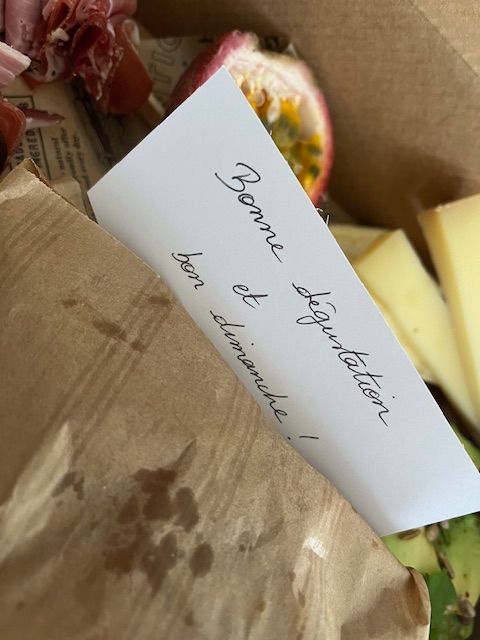 Bonne dégustation
et
bon dimanche !